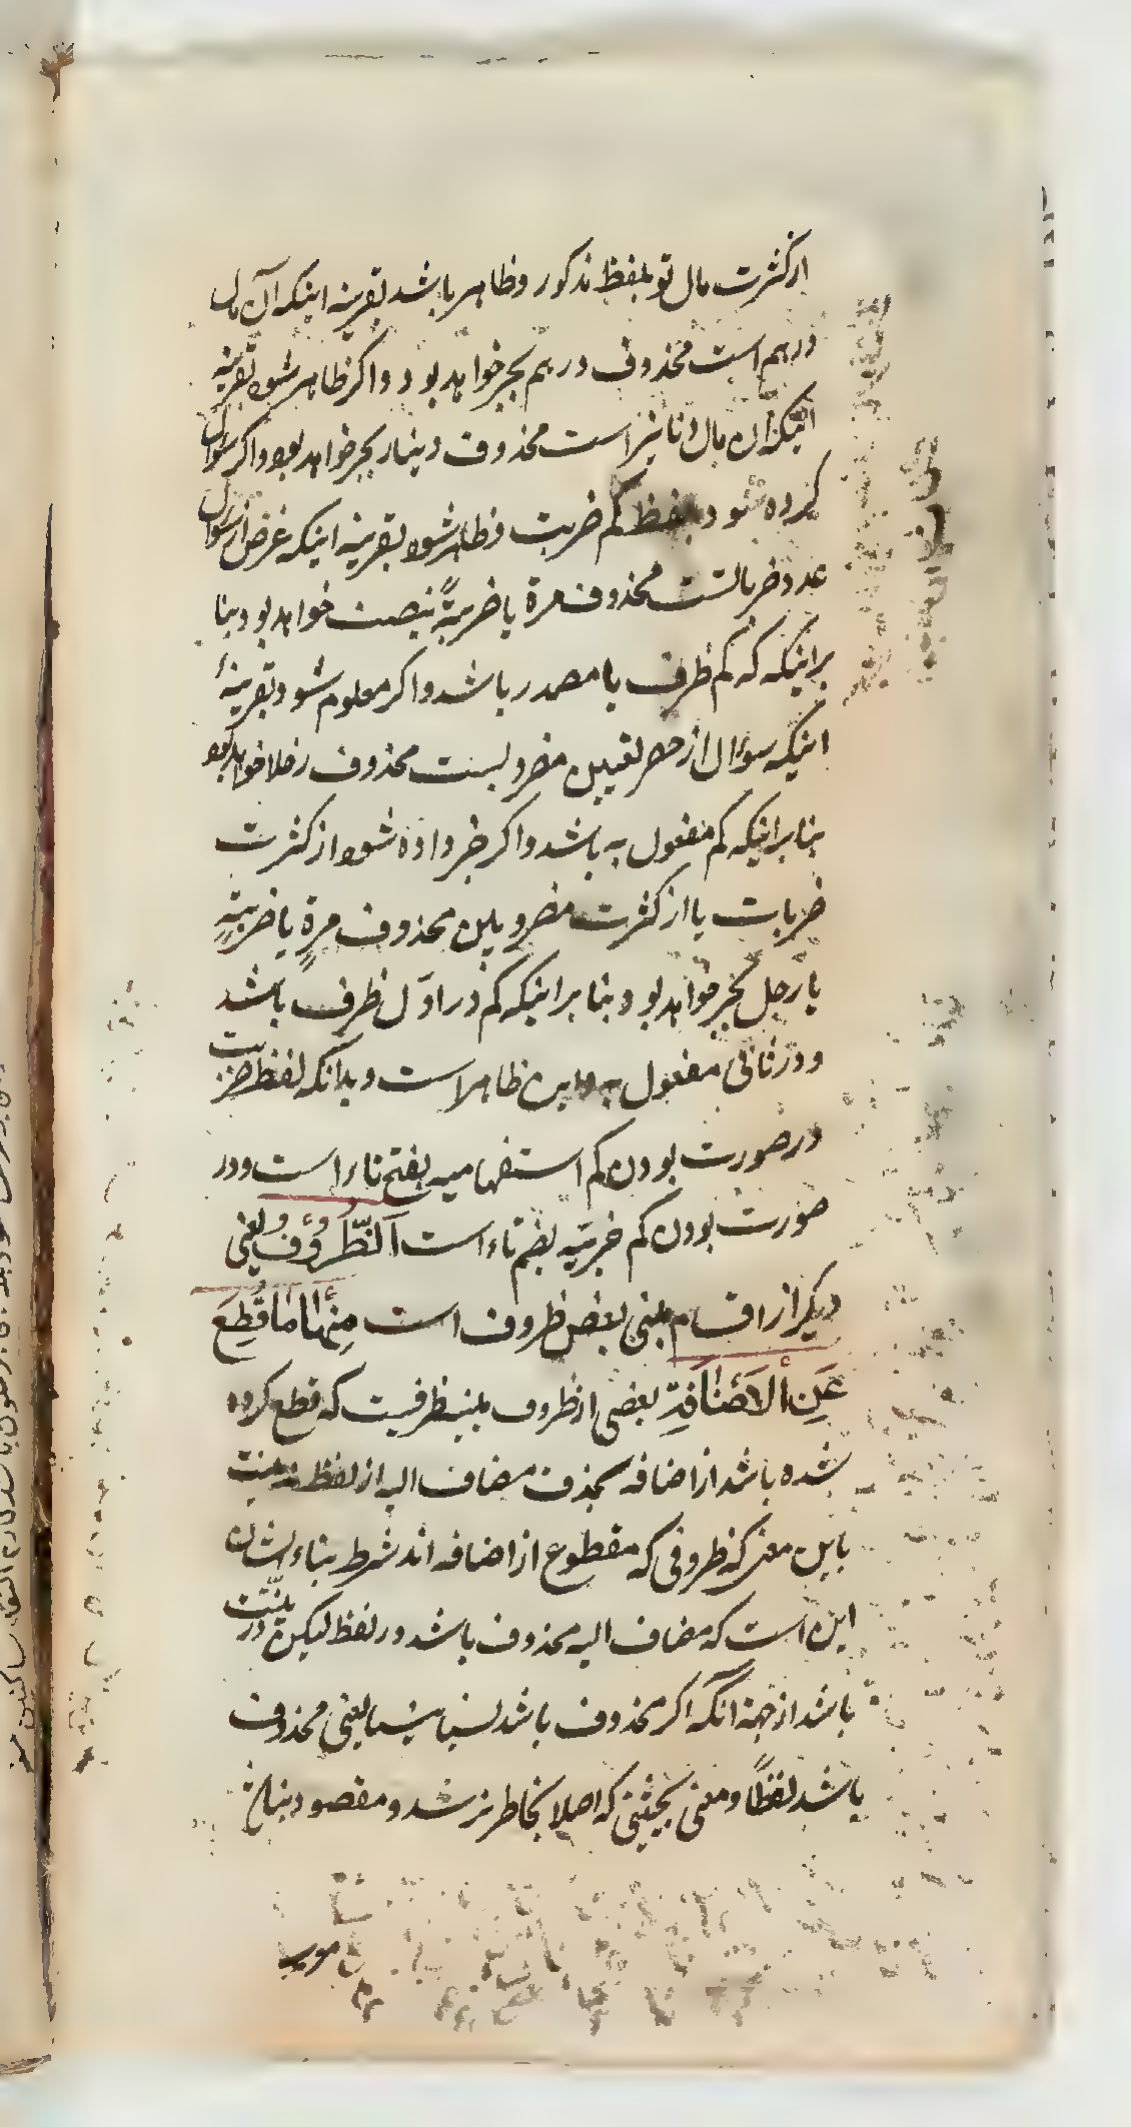 از کثرت مال تو بلفظ مذکور و ظاهر باشد بقرینه اینکه آن مال
درهم است محذوف درهم بجر خواهد بود و اکر ظاهر شود بقرینه
اینکه آن مال دنانیر است محذوف دینار بجر خواهد بود و اکر سوال
کرده شود بلفظ کم ضربت و ظاهر شود بقرینه اینکه غرض از سوال
عدد ضرباتست محذوف مرة یا ضربةً بنصب خواهد بود بنا
براینکه که کم ظرف یا مصدر باشد و اکر معلوم شود بقرینهٔ
اینکه سوءال از حصر تعیین مضروبست محذوف رجلا خواهد بود
بنا براینکه کم مفعول به باشد و اکر خبر داده شود از کثرت
ضربات یا از کثرت مضروبین محذوف مرةٍ یا ضربةٍ
یا رجل بجر خواهد بود بنا براینکه کم در اوّل ظرف باشد
و در ثانی مفعول به و این ظاهر است و بدانکه لفظ ضربت
در صورت بودن کم استفهامیه بفتح تاء است و در
صورت بودن کم خبریّه بضم تاء است اَلظُّرُوُفُ یعنی
دیکر از اقسام مبنی بعض ظروف است مِنْهٰا مٰا قُطِعَ
عَنِ ألاَضٰافَةِ بعضی از ظروف مبنیه ظرفیست که قطع کرده
شده باشد از اضافه بحذف مضاف الیه از لفظ نه نیت
باین معنی که ظروفی که مقطوع از اضافه اند شرط بناء ایشان
این است که مضاف الیه محذوف باشد در لفظ لیکن در نیّت
باشد از جهة انکه اکر محذوف باشد نسیا منسیا یعنی محذوف
باشد لفظًا و معنی بحیثیتی که اصلا بخاطر نرسد و مقصود نباشد